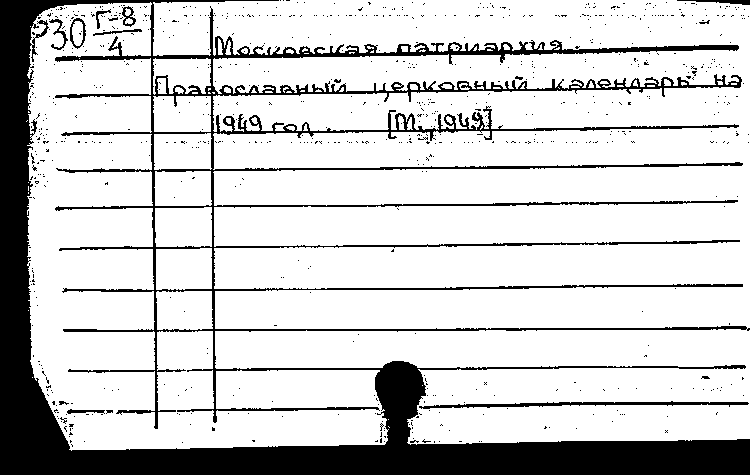 Р30 Г-8/4
Московская патриархия.
Православный церковный календарь на
1949 год. [М., 1949].